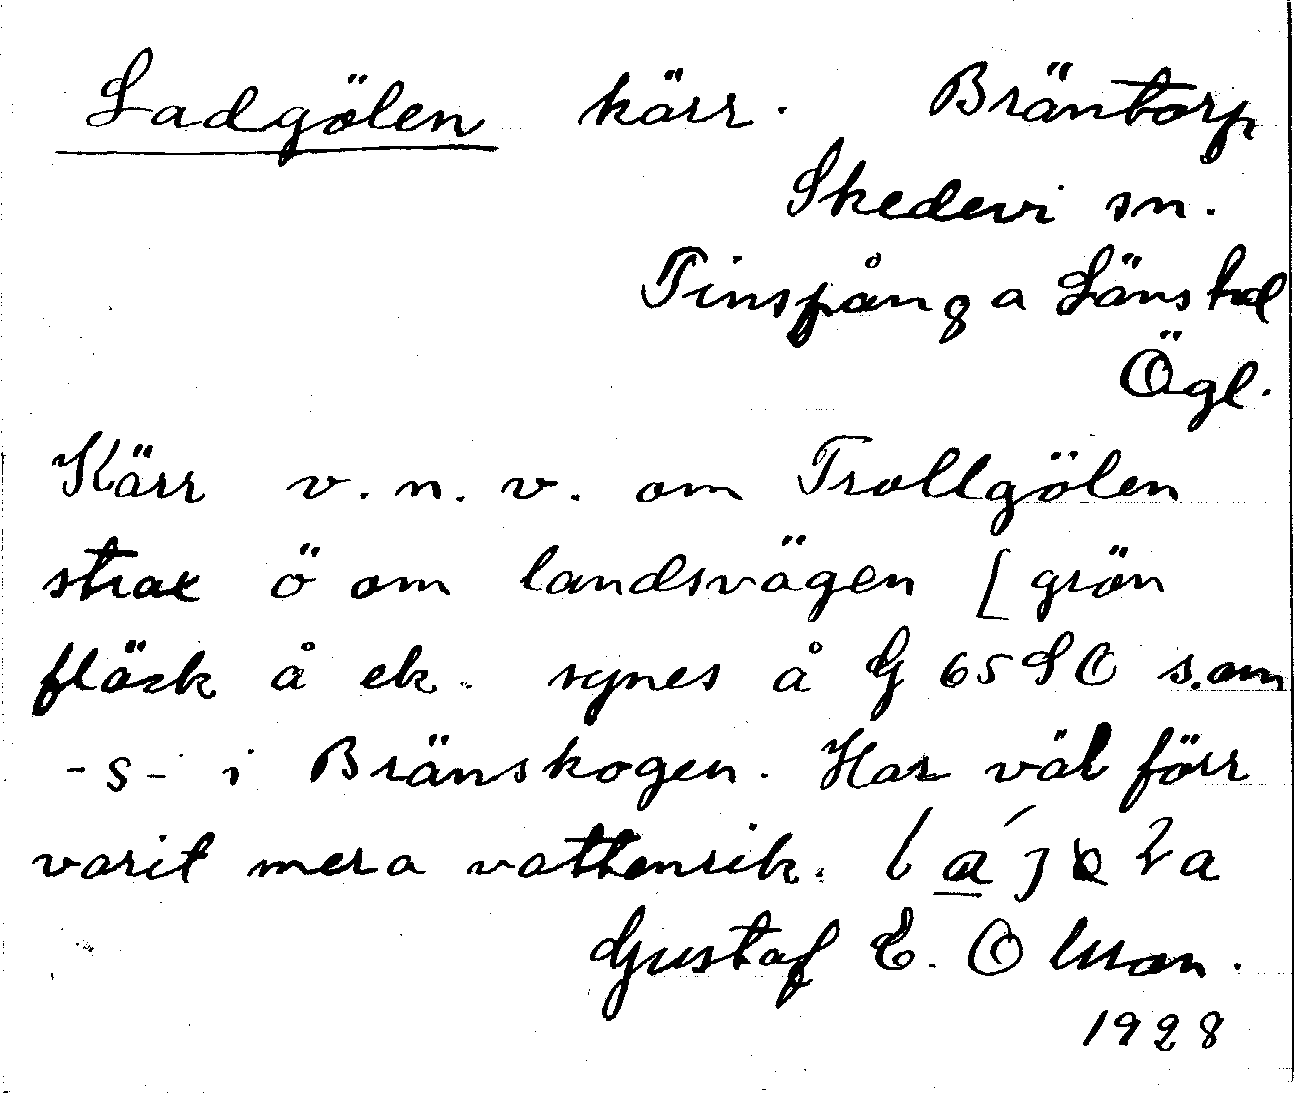 Ladgölen kärr. Bräntorp
Skedevi sn.
Finspånga Läns hd
Ögl.
Kärr v. n. v. om Trollgölen
strax ö om landsvägen [ grön
fläck å ek. synes å G 65 SO s.om
-s- i Bränskogen. Har väl förr
varit mera vattenrik.
Gustaf E. Olsson.
1928